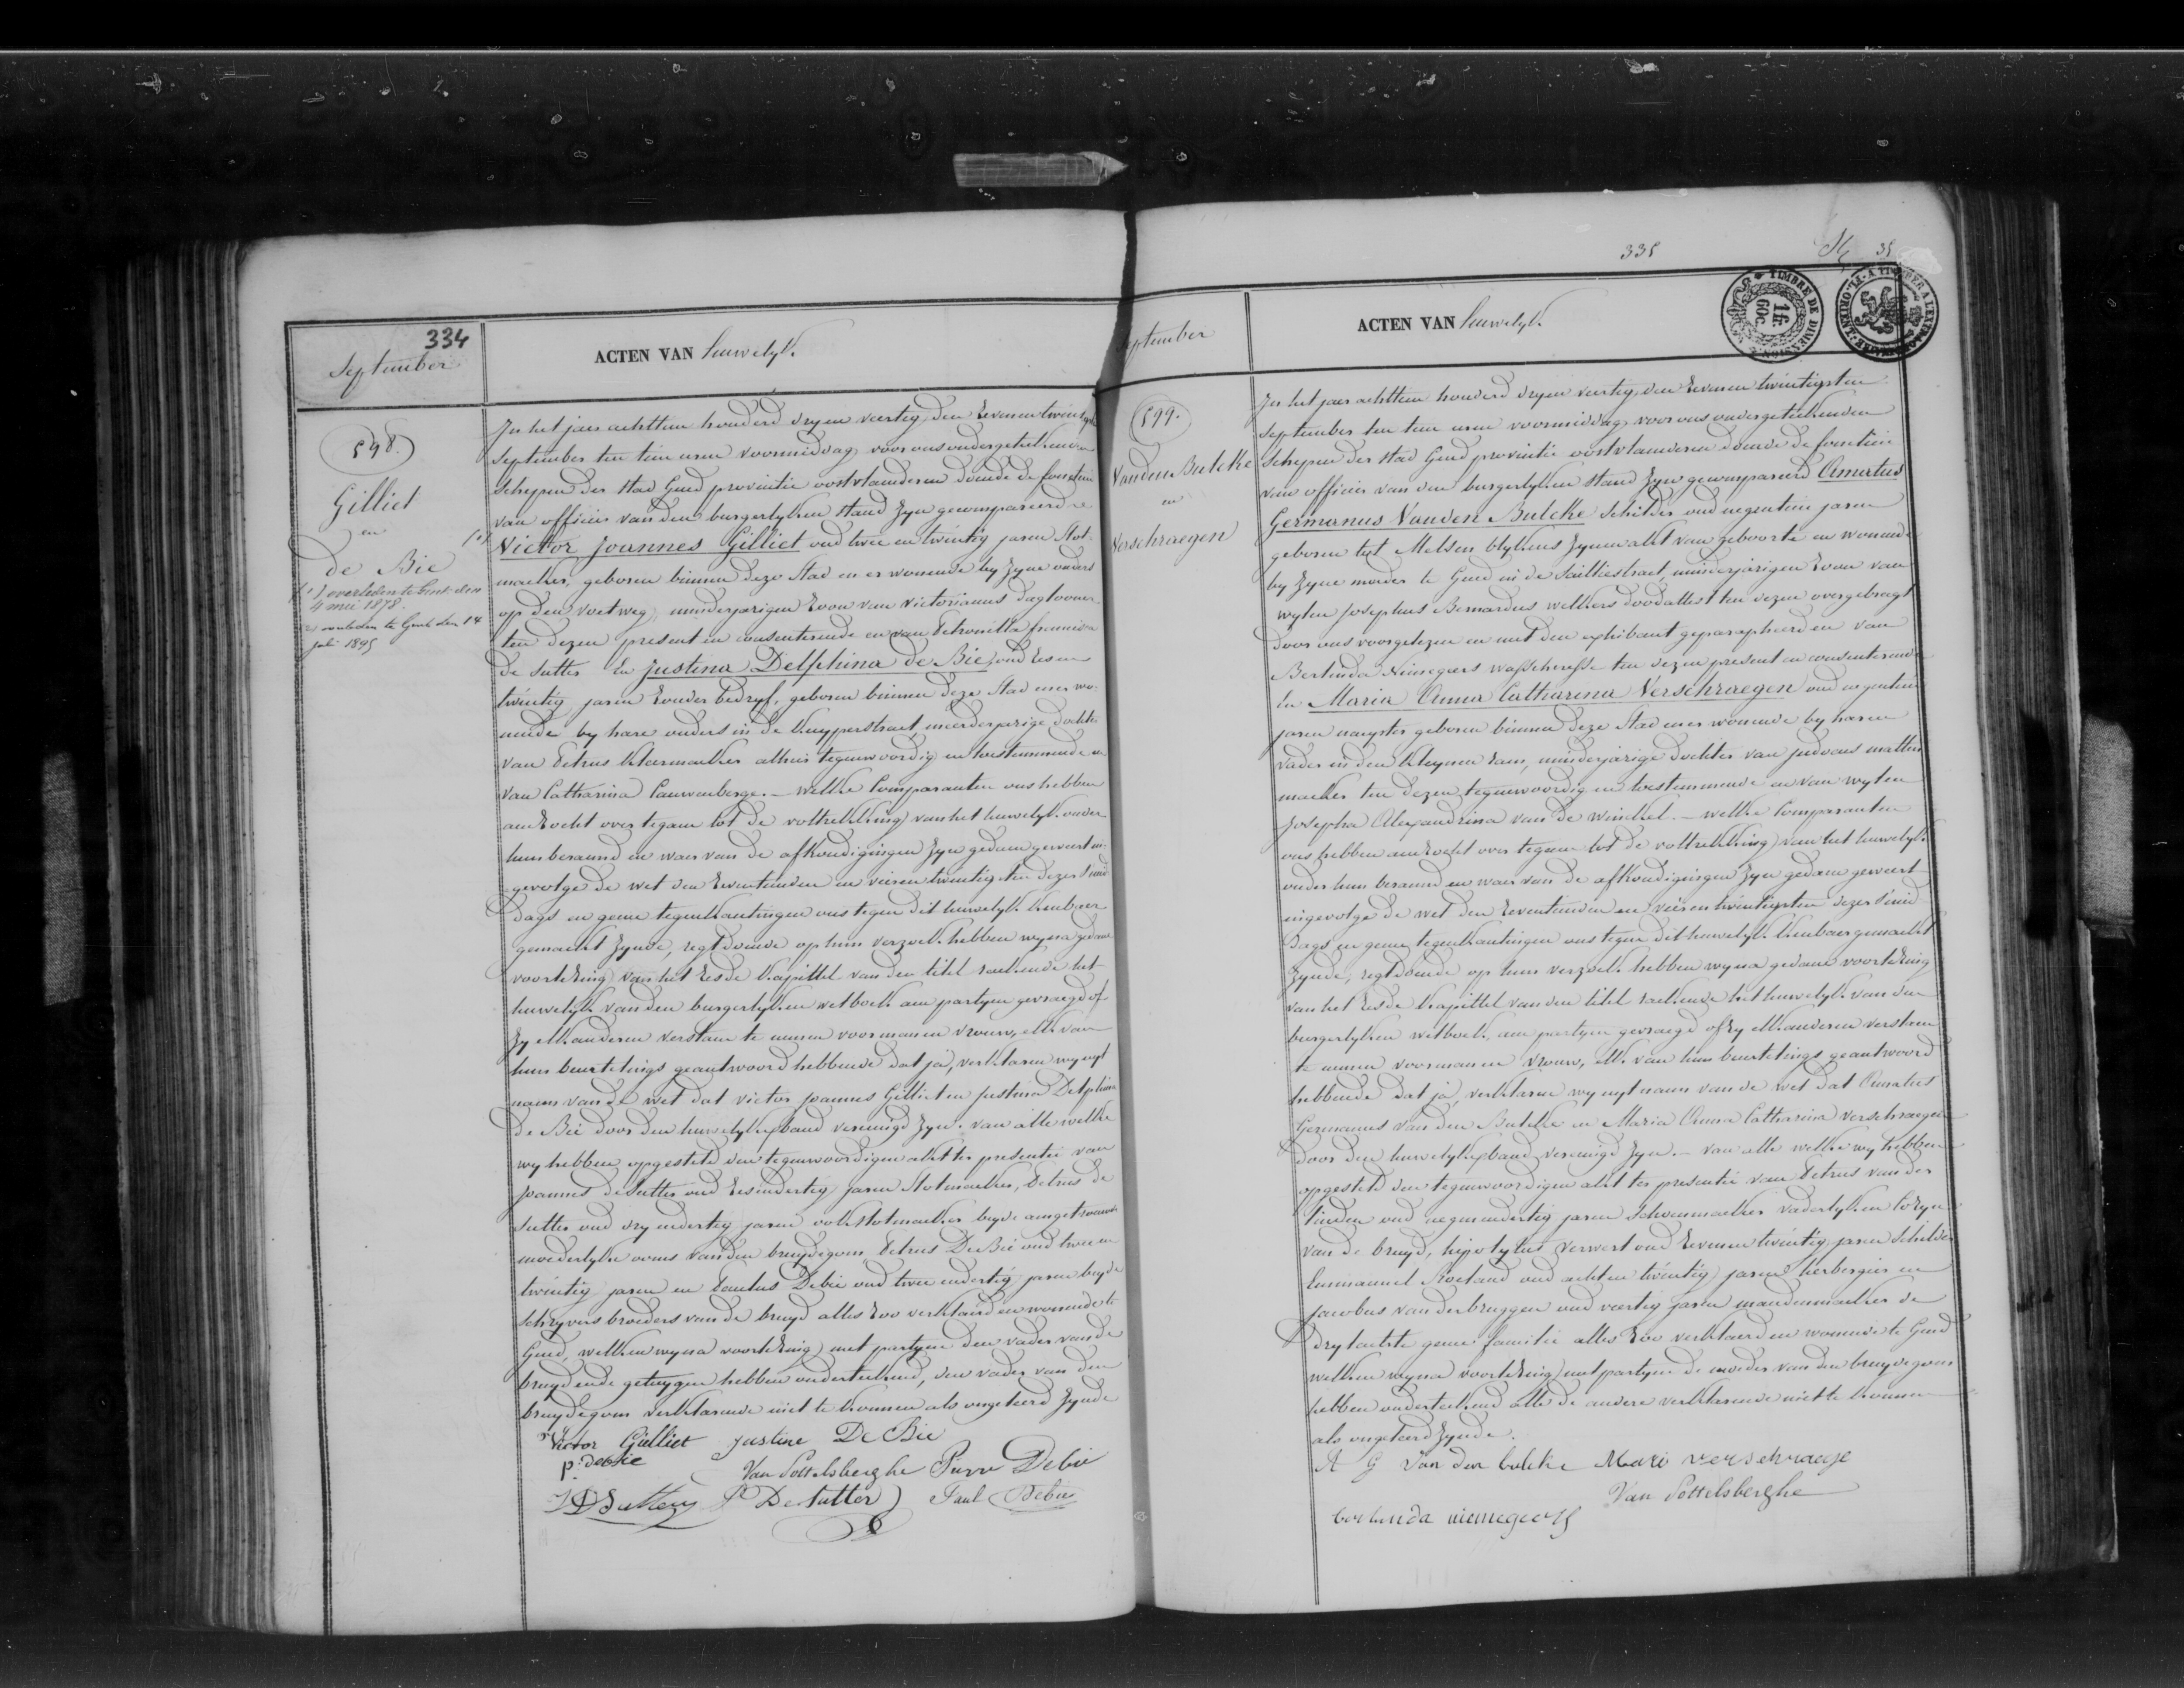 334
September
ACTEN VAN huwelyk.
598.
Gilliet
en
de Bie
(1) overleden te Gent den
4 mei 1878.
2) overleden te Gent den 14
juli 1895
In het jaer achttien honderd dryen veertig den zevenen twintigsten
September ten tien uren voormiddag voor ons ondergeteekenden
schepen der stad Gend provintie oostvlaenderen doende de functien
van officier van den burgerlyken stand zyn gecompareerd
(1) Victor Joannes Gilliet oud twee en twintig jaren slot-
maeker, geboren binnen deze stad en er wonende by zyne ouders
op den voetweg, minderjarigen zoon van Victorianus daglooner
ten dezen present en consenterende en van Petronilla
de Sutter En Justina Delphina de Bie, oud zes en
twintig jaren zonder bedryf, geboren binnen deze stad en er wo-
nende by hare ouders in de kuyperstraet, meerderjarige dochter
van Petrus kleermaeker alhier tegenwoordig en toestemmende en
van Catharina Cauwenberge. – welke Comparanten ons hebben
aenzocht over tegaen tot de voltrekking van het huwelyk onder
hun beraemd en waer van de afkondigingen zyn gedaen geweest in-
gevolge de wet den zeventienden en vieren twintigsten dezer zon-
dags en geene tegenkantingen ons tegen dit huwelyk kenbaer
gemaekt zynde, regtdoende op hun verzoek hebben wy na gedane
voorlezing van het zesde kapittel van den titel raekende het
huwelyk van den burgerlyken wetboek aen partyen gevraegd of
zy elkanderen verstaen te nemen voor man en vrouw, elk van
hun beurtelings geantwoord hebbende dat ja, verklaren wy uyt
naem van de wet dat victor joannes Gilliet en justina Delphina
de Bie door den huwelykxband vereenigd zyn. van alle welke
wy hebben opgesteld den tegenwoordigen akt ter presentie van
Joannes de Sutter oud zesendertig jaren slotmaeker, Petrus de
Sutter oud dry endertig jaren ook slotmaeker beyde aengetrouwde
moederlyke ooms van den bruydegom Petrus De Bie oud twee en
twintig jaren en Paulus Debie oud twee endertig jaren beyde
schryvers broeders van de bruyd alles zoo verklaerd en wonende te
Gend, welken wy na voorlezing met partyen den vader van de
bruyd ende getuygen hebben onderteekend, den vader van den
bruydegom verklarende niet te konnen als ongeleerd zynde
Victor Gilliet justine De Bie
p. debie Van Pottelsberghe Pierre Debie
De Sutter Paul Debie
335
35
September
ACTEN VAN huwelyk.
TIMBRE DE DIMENSION
1 fr. 60 c.
599.
Vanden Bulcke
en
Verschraegen
In het jaer achttien honderd dryen veertig den zevenen twintigsten
September ten tien uren voormiddag voor ons ondergeteekenden
schepen der stad Gend provintie oostvlaenderen doende de functien
van officier van den burgerlyken stand zyn gecompareerd Amatus
Germanus Vanden Bulcke schilder oud negentien jaren
geboren tot Melsen blykens zynen akt van geboorte en wonende
by zyne moeder te Gend in de Sailliestraet, minderjarigen zoon van
wylen Josephus Bernardus welkers doodakt ten dezen overgebragt
door ons voorgelezen en met den exhibant geparapheerd en van
Berlinda Niemegeers wasscheresse ten dezen present en consenterende
En Maria Anna Catharina Verschraegen oud negentien
jaren naeyster geboren binnen deze stad en er wonende by haren
vader in den kleynen ham, minderjarige dochter van judocus matten
maeker ten dezen tegenwoordig en toestemmende en van wylen
Josepha Alexandrina van de Winckel. – welke Comparanten
ons hebben aenzocht over tegaen tot de voltrekking van het huwelyk
onder hun beraemd en waer van de afkondigingen zyn gedaen geweest
ingevolge de wet den zeventienden en vieren twintigsten dezer zon-
dags en geene tegenkantingen ons tegen dit huwelyk kenbaer gemaekt
zynde, regtdoende op hun verzoek hebben wy na gedane voorlezing
van het zesde kapittel van den titel raekende het huwelyk van den
burgerlyken wetboek, aen partyen gevraegd of zy elkanderen verstaen
te nemen voor man en vrouw, elk van hun beurtelings geantwoord
hebbende dat ja, verklaren wy uyt naem van de wet dat Amatus
Germanus van den Bulcke en Maria Anna Catharina verschraegen
door den huwelykxband vereenigd zyn. – van alle welke wy hebben
opgesteld den tegenwoordigen akt ter presentie van Petrus van der
linden oud negenendertig jaren schoenmaeker vaderlyken cozyn
van de bruyd, hippolytus Verwest oud zevenen twintig jaren schilder
Emmanuel Roeland oud achten twintig jaren herbergier en
jacobus van der bruggen oud veertig jaren mandenmaeker de
dry laetste geene familie alles zoo verklaerd en wonende te Gend
welken wy na voorlezing met partyen de moeder van den bruydegom
hebben onderteekend alle de andere verklarende niet te konnen
als ongeleerd zynde.
A G Van den bulcke Marie verschraege
Van Pottelsberghe
berlinda niemegeers